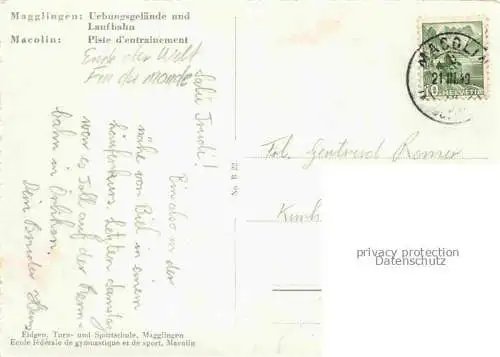 Magglingen: Uebungsgelände und
Laufbahn
Macolin: Piste d'entrainement
Ende der Welt
Fin du monde
Salü Trudi!
Bin also in der
nähe von Biel in einem
Läuferkurs. Letzten Samstag
war es Toll auf der Renn-
bahn in Örlikon.
Dein Bruder
MACOLIN
21.III.49
10 HELVETIA
No. B 22
Frl. Gertrud Romer
privacy protection
Datenschutz
Eidgen. Turn- und Sportschule, Magglingen
Ecole fédérale de gymnastique et de sport, Macolin